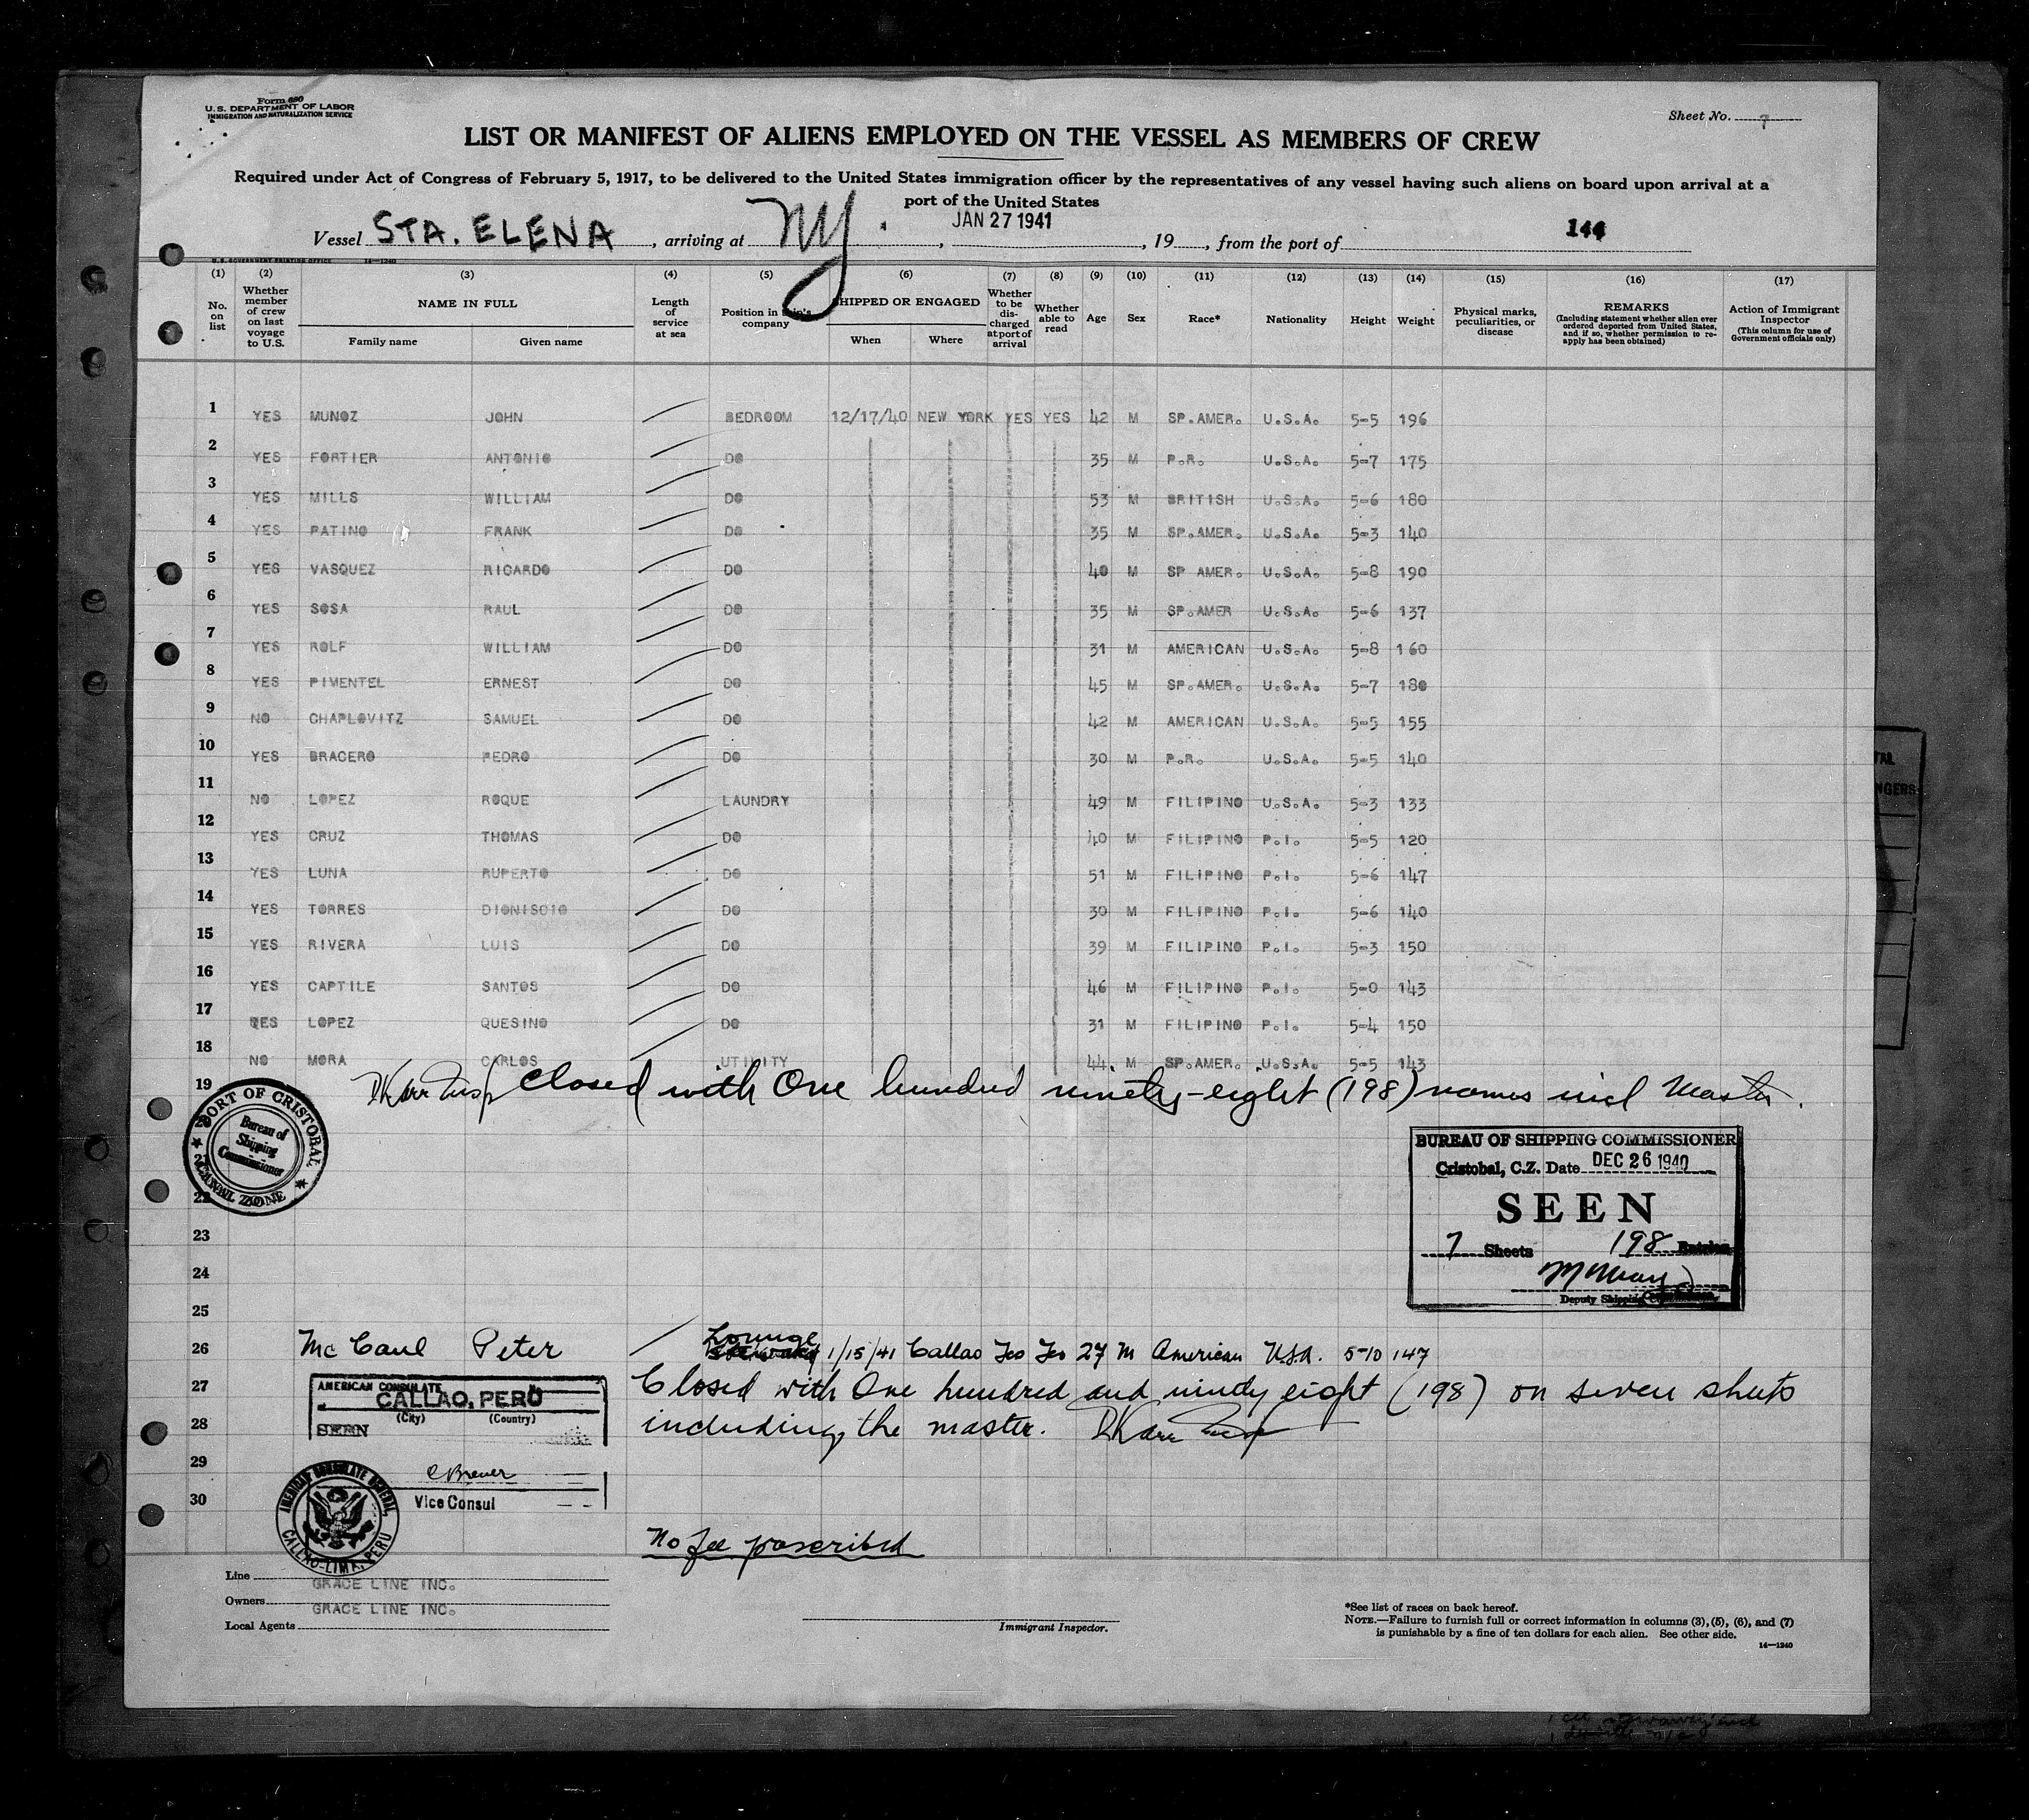 Form 680
U.S. DEPARTMENT OF LABOR
IMMIGRATION AND NATURALIZATION SERVICE
Sheet No. 7
LIST OR MANIFEST OF ALIENS EMPLOYED ON THE VESSEL AS MEMBERS OF CREW
Required under Act of Congress of February 5, 1917, to be delivered to the United States immigration officer by the representatives of any vessel having such aliens on board upon arrival at a
port of the United States
Vessel STA. ELENA, arriving at NY., JAN 27 1941, 19, from the port of 144
U. S. GOVERNMENT PRINTING OFFICE 14—1240
(1) (2) (3) (4) (5) (6) (7) (8) (9) (10) (11) (12) (13) (14) (15) (16) (17)
No. on list
Whether member of crew on last voyage to U.S.
NAME IN FULL
Family name Given name
Length of service at sea
Position in ship's company
SHIPPED OR ENGAGED
When Where
Whether to be discharged at port of arrival
Whether able to read
Age Sex Race* Nationality Height Weight
Physical marks, peculiarities, or disease
REMARKS
(Including statement whether alien ever ordered deported from United States, and if so, whether permission to re-apply has been obtained)
Action of Immigrant Inspector
(This column for use of Government officials only)
1 YES MUNOZ JOHN BEDROOM 12/17/40 NEW YORK YES YES 42 M SP.AMER. U.S.A. 5-5 196
2 YES FORTIER ANTONIO DO 35 M P.R. U.S.A. 5-7 175
3 YES MILLS WILLIAM DO 53 M BRITISH U.S.A. 5-6 180
4 YES PATINO FRANK DO 35 M SP.AMER. U.S.A. 5-3 140
5 YES VASQUEZ RICARDO DO 40 M SP AMER. U.S.A. 5-8 190
6 YES SOSA RAUL DO 35 M SP.AMER U.S.A. 5-6 137
7 YES ROLF WILLIAM DO 31 M AMERICAN U.S.A. 5-8 160
8 YES PIMENTEL ERNEST DO 45 M SP.AMER. U.S.A. 5-7 180
9 NO CHAPLOVITZ SAMUEL DO 42 M AMERICAN U.S.A. 5-5 155
10 YES BRACERO PEDRO DO 30 M P.R. U.S.A. 5-5 140
11 NO LOPEZ ROQUE LAUNDRY 49 M FILIPINO U.S.A. 5-3 133
12 YES CRUZ THOMAS DO 40 M FILIPINO P.I. 5-5 120
13 YES LUNA RUPERTO DO 51 M FILIPINO P.I. 5-6 147
14 YES TORRES DIONISCIO DO 30 M FILIPINO P.I. 5-6 140
15 YES RIVERA LUIS DO 39 M FILIPINO P.I. 5-3 150
16 YES CAPTILE SANTOS DO 46 M FILIPINO P.I. 5-0 143
17 YES LOPEZ QUESINO DO 31 M FILIPINO P.I. 5-4 150
18 NO MORA CARLOS UTILITY 44 M SP.AMER. U.S.A. 5-5 143
19 Closed with One hundred ninety-eight (198) names incl Master.
PORT OF CRISTOBAL
Bureau of Shipping Commissioner
CANAL ZONE
20
21
22
BUREAU OF SHIPPING COMMISSIONER
Cristobal, C.Z. Date DEC 26 1940
SEEN
7 Sheets 198 Entries
Deputy Shipping
23
24
25
26 McCaul Peter Lounge 1/15/41 Callao Yes Yes 27 M American U.S.A. 5-10 147
27 Closed with One hundred and ninety eight (198) on seven sheets
28 including the master.
AMERICAN CONSULATE
CALLAO, PERU
(City) (Country)
SEEN
29
Vice Consul
30
AMERICAN CONSULATE GENERAL, CALLAO-LIMA, PERU
No fee prescribed
Line GRACE LINE INC.
Owners GRACE LINE INC.
Local Agents
Immigrant Inspector.
*See list of races on back hereof.
NOTE.—Failure to furnish full or correct information in columns (3), (5), (6), and (7)
is punishable by a fine of ten dollars for each alien. See other side.
14—1240